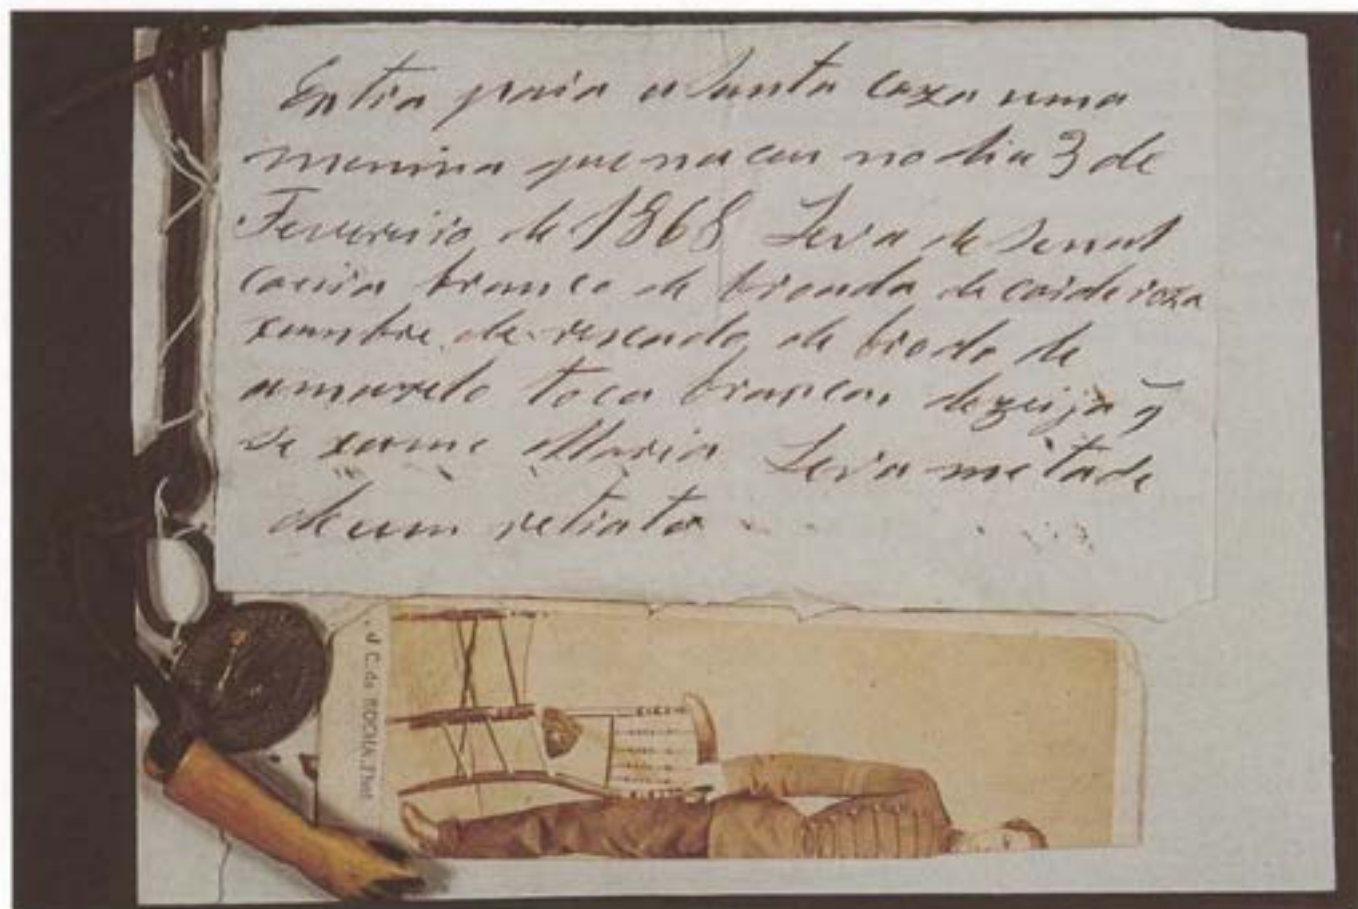 Entra para a Santa caza uma
menina que naceu no dia 3 de
Fevereiro de 1868 Leva de senal
branco de de cor de roza
de riscado de
amarelo toca branca, dezeija q̃
se xame Maria Leva metade
de um retrato
J C. da ROCHA. Phot